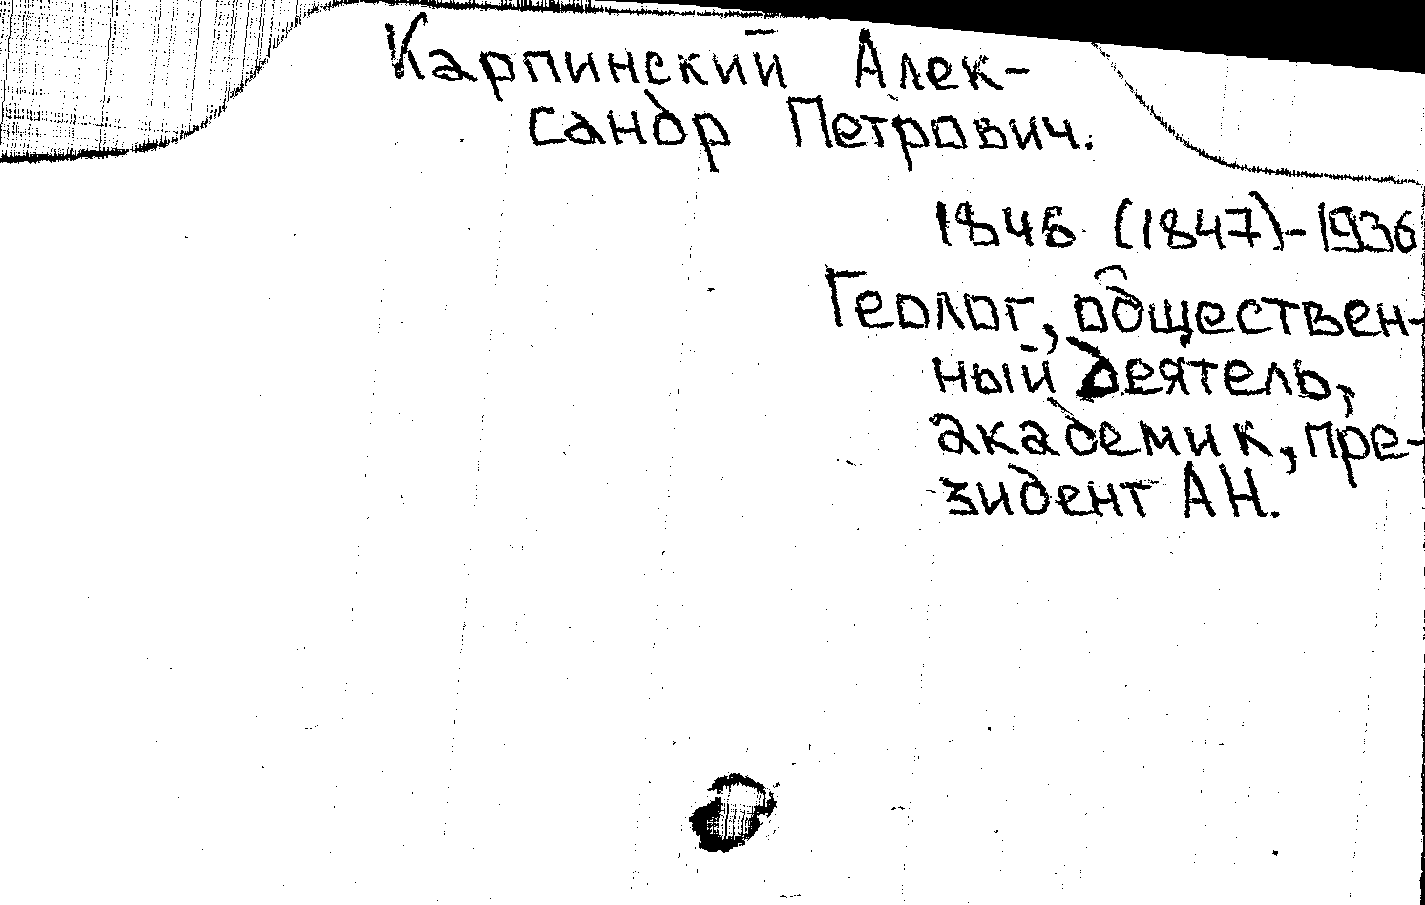 Карпинский Алек-
сандр Петрович.
1846 (1847)-1936
Геолог, обществен-
ный деятель,
академик, пре-
зидент АН.